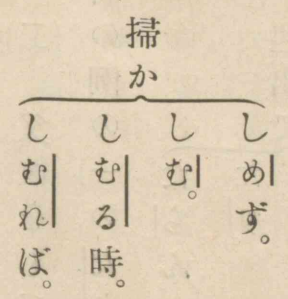 掃か
しめず。
しむ。
しむる時。
しむれば。